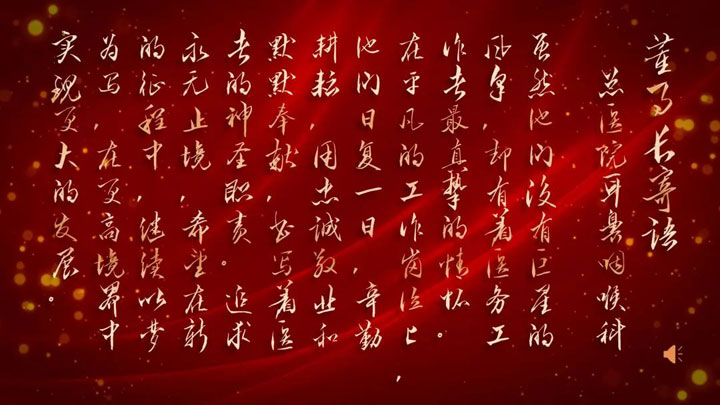 董事长寄语
总医院耳鼻咽喉科
虽然他们没有巨星的
风采，却有着医务工
作者最真挚的情怀。
在平凡的工作岗位上，
他们日复一日，辛勤
耕耘，用忠诚敬业和
默默奉献，书写着医
者的神圣职责。追求
永无止境，希望在新
的征程中，继续以梦
为马，在更高境界中
实现更大的发展。